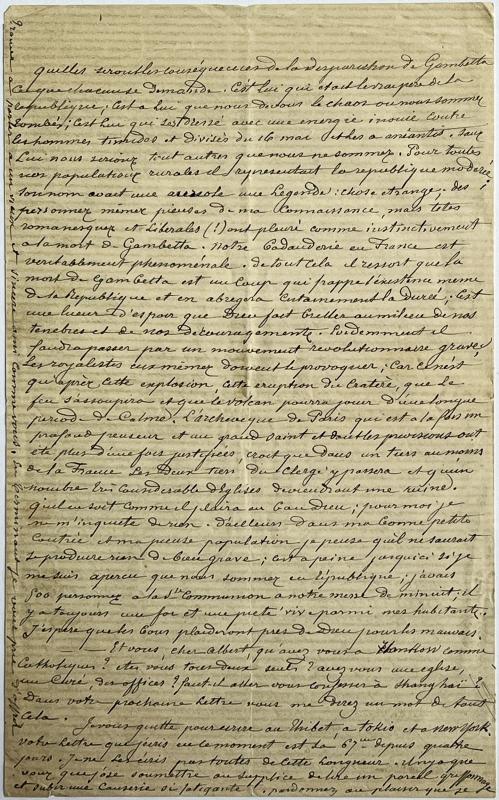 Quelles seront les conséquences de la disparition de Gambetta
Ce que chacun se demande. C'est lui qui était le vrai père de la
république; c'est à lui que nous devons le chaos où nous sommes
tombés; c'est lui qui s'est dressé avec une énergie inouïe contre
les hommes timides et divisés du 16 mai et les a anéantis. Sans
lui nous serions tout autres que nous ne sommes. Pour toutes
nos populations rurales il représentait la république modérée
son nom avait une auréole une légende: chose étrange. des
personnes mêmes pieuses de ma connaissance, mais têtes
romanesques et libérales (!) ont pleuré comme instinctivement
à la mort de Gambetta. Notre badauderie en France est
véritablement phénoménale. de tout cela il ressort que la
mort de Gambetta est un coup qui frappe l'existence même
de la République et en abrègera certainement la durée; c'est
une lueur d'espoir que Dieu fait briller au milieu de nos
ténèbres et de nos découragements. Évidemment il
faudra passer par un mouvement révolutionnaire grave
les royalistes eux mêmes doivent le provoquer; car ce n'est
qu'après cette explosion cette éruption du cratère, que le
feu s'assoupira et que le volcan pourra jouir d'une longue
période de calme. L'archevêque de Paris qui est à la fois un
profond penseur et un grand saint et dont les prévisions ont
été plus d'une fois justifiées, croit que dans un tiers au moins
de la France les deux tiers du clergé y passera et qu'un
nombre très considérable d'églises deviendront une ruine.
Qu'il en soit comme il plaira au bon Dieu; pour moi je
ne m'inquiète de rien. d'ailleurs dans ma bonne petite
contrée et ma pieuse population je pense qu'il ne saurait
se produire rien de bien grave; c'est à peine jusqu'ici si je
me suis aperçu que nous sommes en république; j'avais
500 personnes à la Ste Communion à notre messe de minuit. il
y a toujours une foi et une piété vive parmi mes habitants.
J'espère que les bons plaideront près de Dieu pour les mauvais.
- Et vous, cher Albert, qu'avez vous à Hankow comme
Catholiques? êtes vous tous deux seuls? avez vous une église,
un Curé des offices? faut il aller vous confesser à Shanghaï?
Dans votre prochaine lettre vous me direz un mot de tout
cela. Je vous quitte pour écrire au Thibet, à Tokio et à New York.
votre lettre que j'écris en ce moment est la 67me depuis quatre
jours. Je ne les écris pas toutes de cette longueur. Il n'y a que
vous que j'ose soumettre au supplice de lire un pareil griffonnage
et subir une causerie si fatigante. pardonnez au plaisir que je